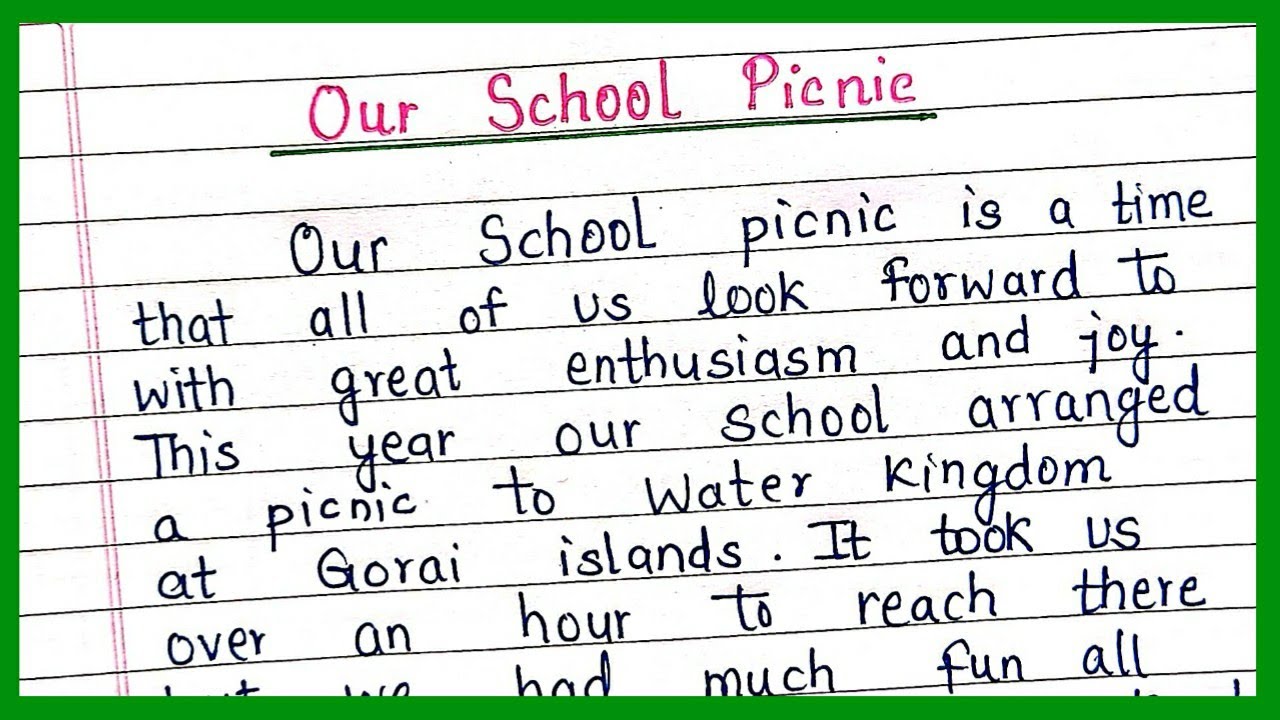 Our School Picnic
Our School picnic is a time
that all of us look forward to
with great enthusiasm and joy.
This year our school arranged
a picnic to Water Kingdom
at Gorai islands. It took us
over an hour to reach there
but we had much fun all